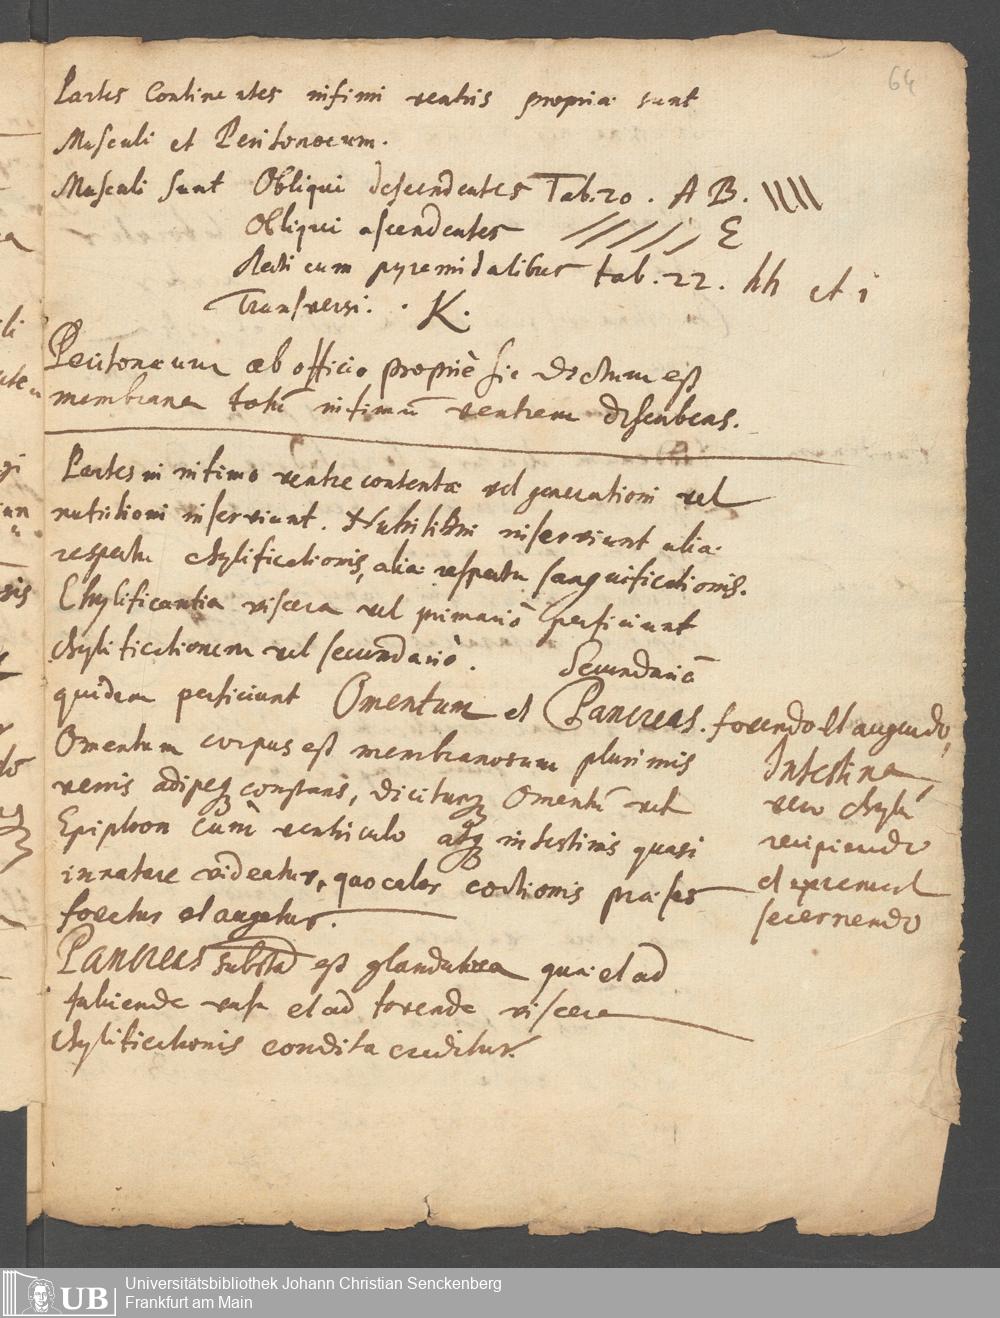 64
Partes Continentes infimi ventris propriæ sunt
Musculi et Peritonæum.
Musculi sunt Obliqui descendentes Tab. 20. A B.
Obliqui ascendentes E
Recti cum pyramidalibus tab. 22. hh et i
Transversi. K.
Peritonæum ab officio propriè sic dictum est
membrana totū infimū ventrem
Partes in infimo ventre contentæ vel generationi vel
nutritioni inserviunt. Nutritioni inserviunt alia
respectu chylificationis, alia respectu sanguificationis.
Chylificantia viscera vel primariò perficiunt
chylificationem vel secundariò. Secundariò
quidem perficiunt Omentum et Pancreas. fovendo et augendo,
Intestina
vero chylū
recipiendo
et
secernendo
Omentum corpus est membranosum plurimis
venis adipeq constans, diciturq Omentū vel
Epiploon cum ventriculo atq intestinis quasi
innatare videatur, quo calor coctionis præses
fovetur et augetur.
Pancreas substā est glandulosa quæ et ad
vasa et ad fovenda viscera
chylificationis condita creditur.
Universitätsbibliothek Johann Christian Senckenberg
Frankfurt am Main
UB